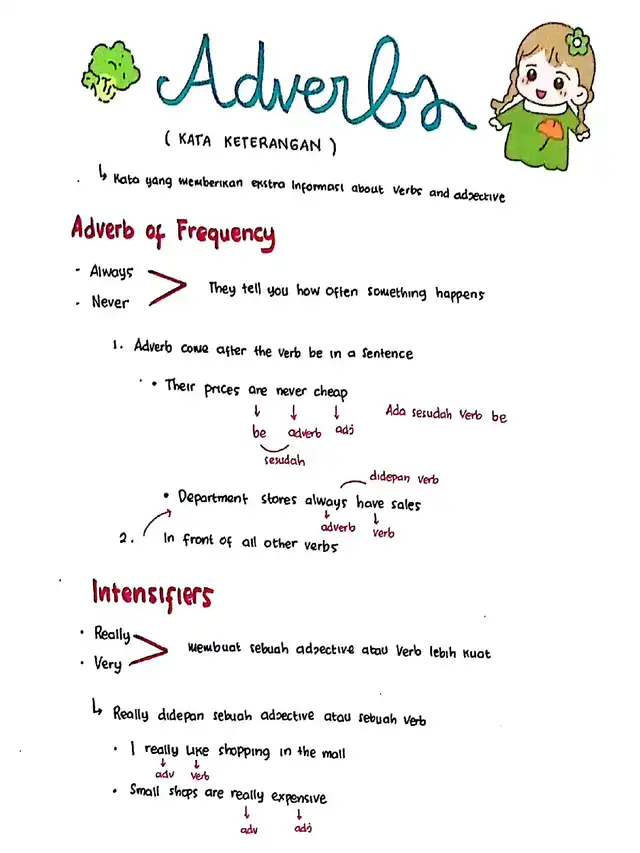 Adverbs
( KATA KETERANGAN )
↳ Kata yang memberikan ekstra informasi about verbs and adjective
Adverb of Frequency
- Always
- Never
They tell you how often something happens
1. Adverb come after the verb be in a sentence
• Their prices are never cheap
↓ ↓ ↓
be adverb adj
Ada sesudah verb be
sesudah
didepan verb
• Department stores always have sales
↓ ↓
adverb verb
2. In front of all other verbs
Intensifiers
• Really
• Very
Membuat sebuah adjective atau verb lebih kuat
↳ Really didepan sebuah adjective atau sebuah verb
• I really like shopping in the mall
↓ ↓
adv verb
• Small shops are really expensive
↓ ↓
adv adj